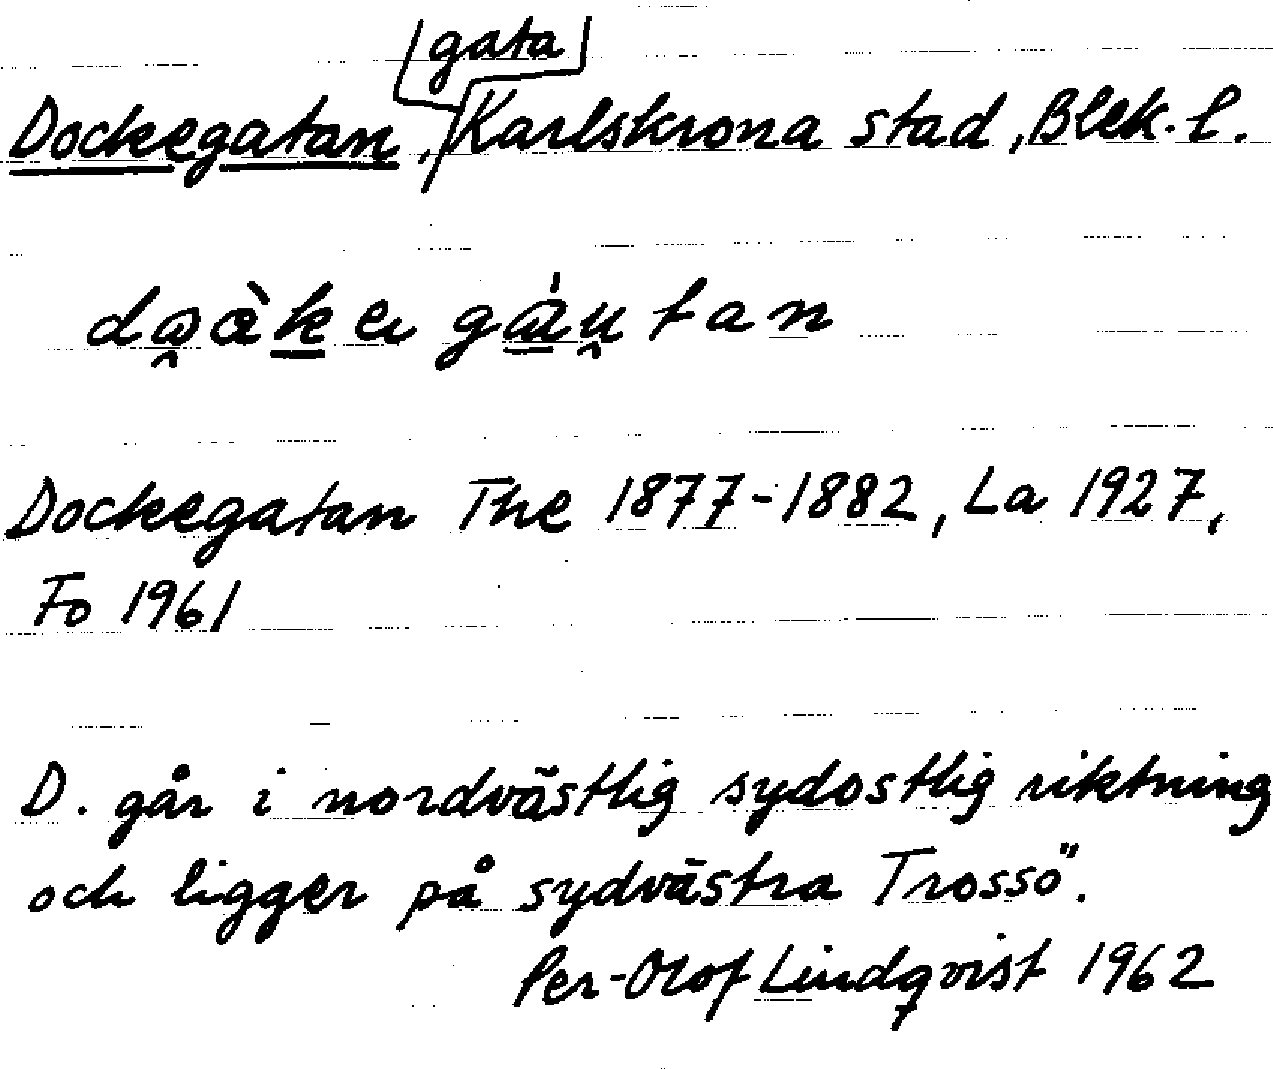 gata
Dockegatan, Karlskrona stad, Blek. l.
Dockegatan The 1877-1882, La 1927,
Fo 1961
D. går i nordvästlig sydostlig riktning
och ligger på sydvästra Trossö.
Per-Olof Lindqvist 1962